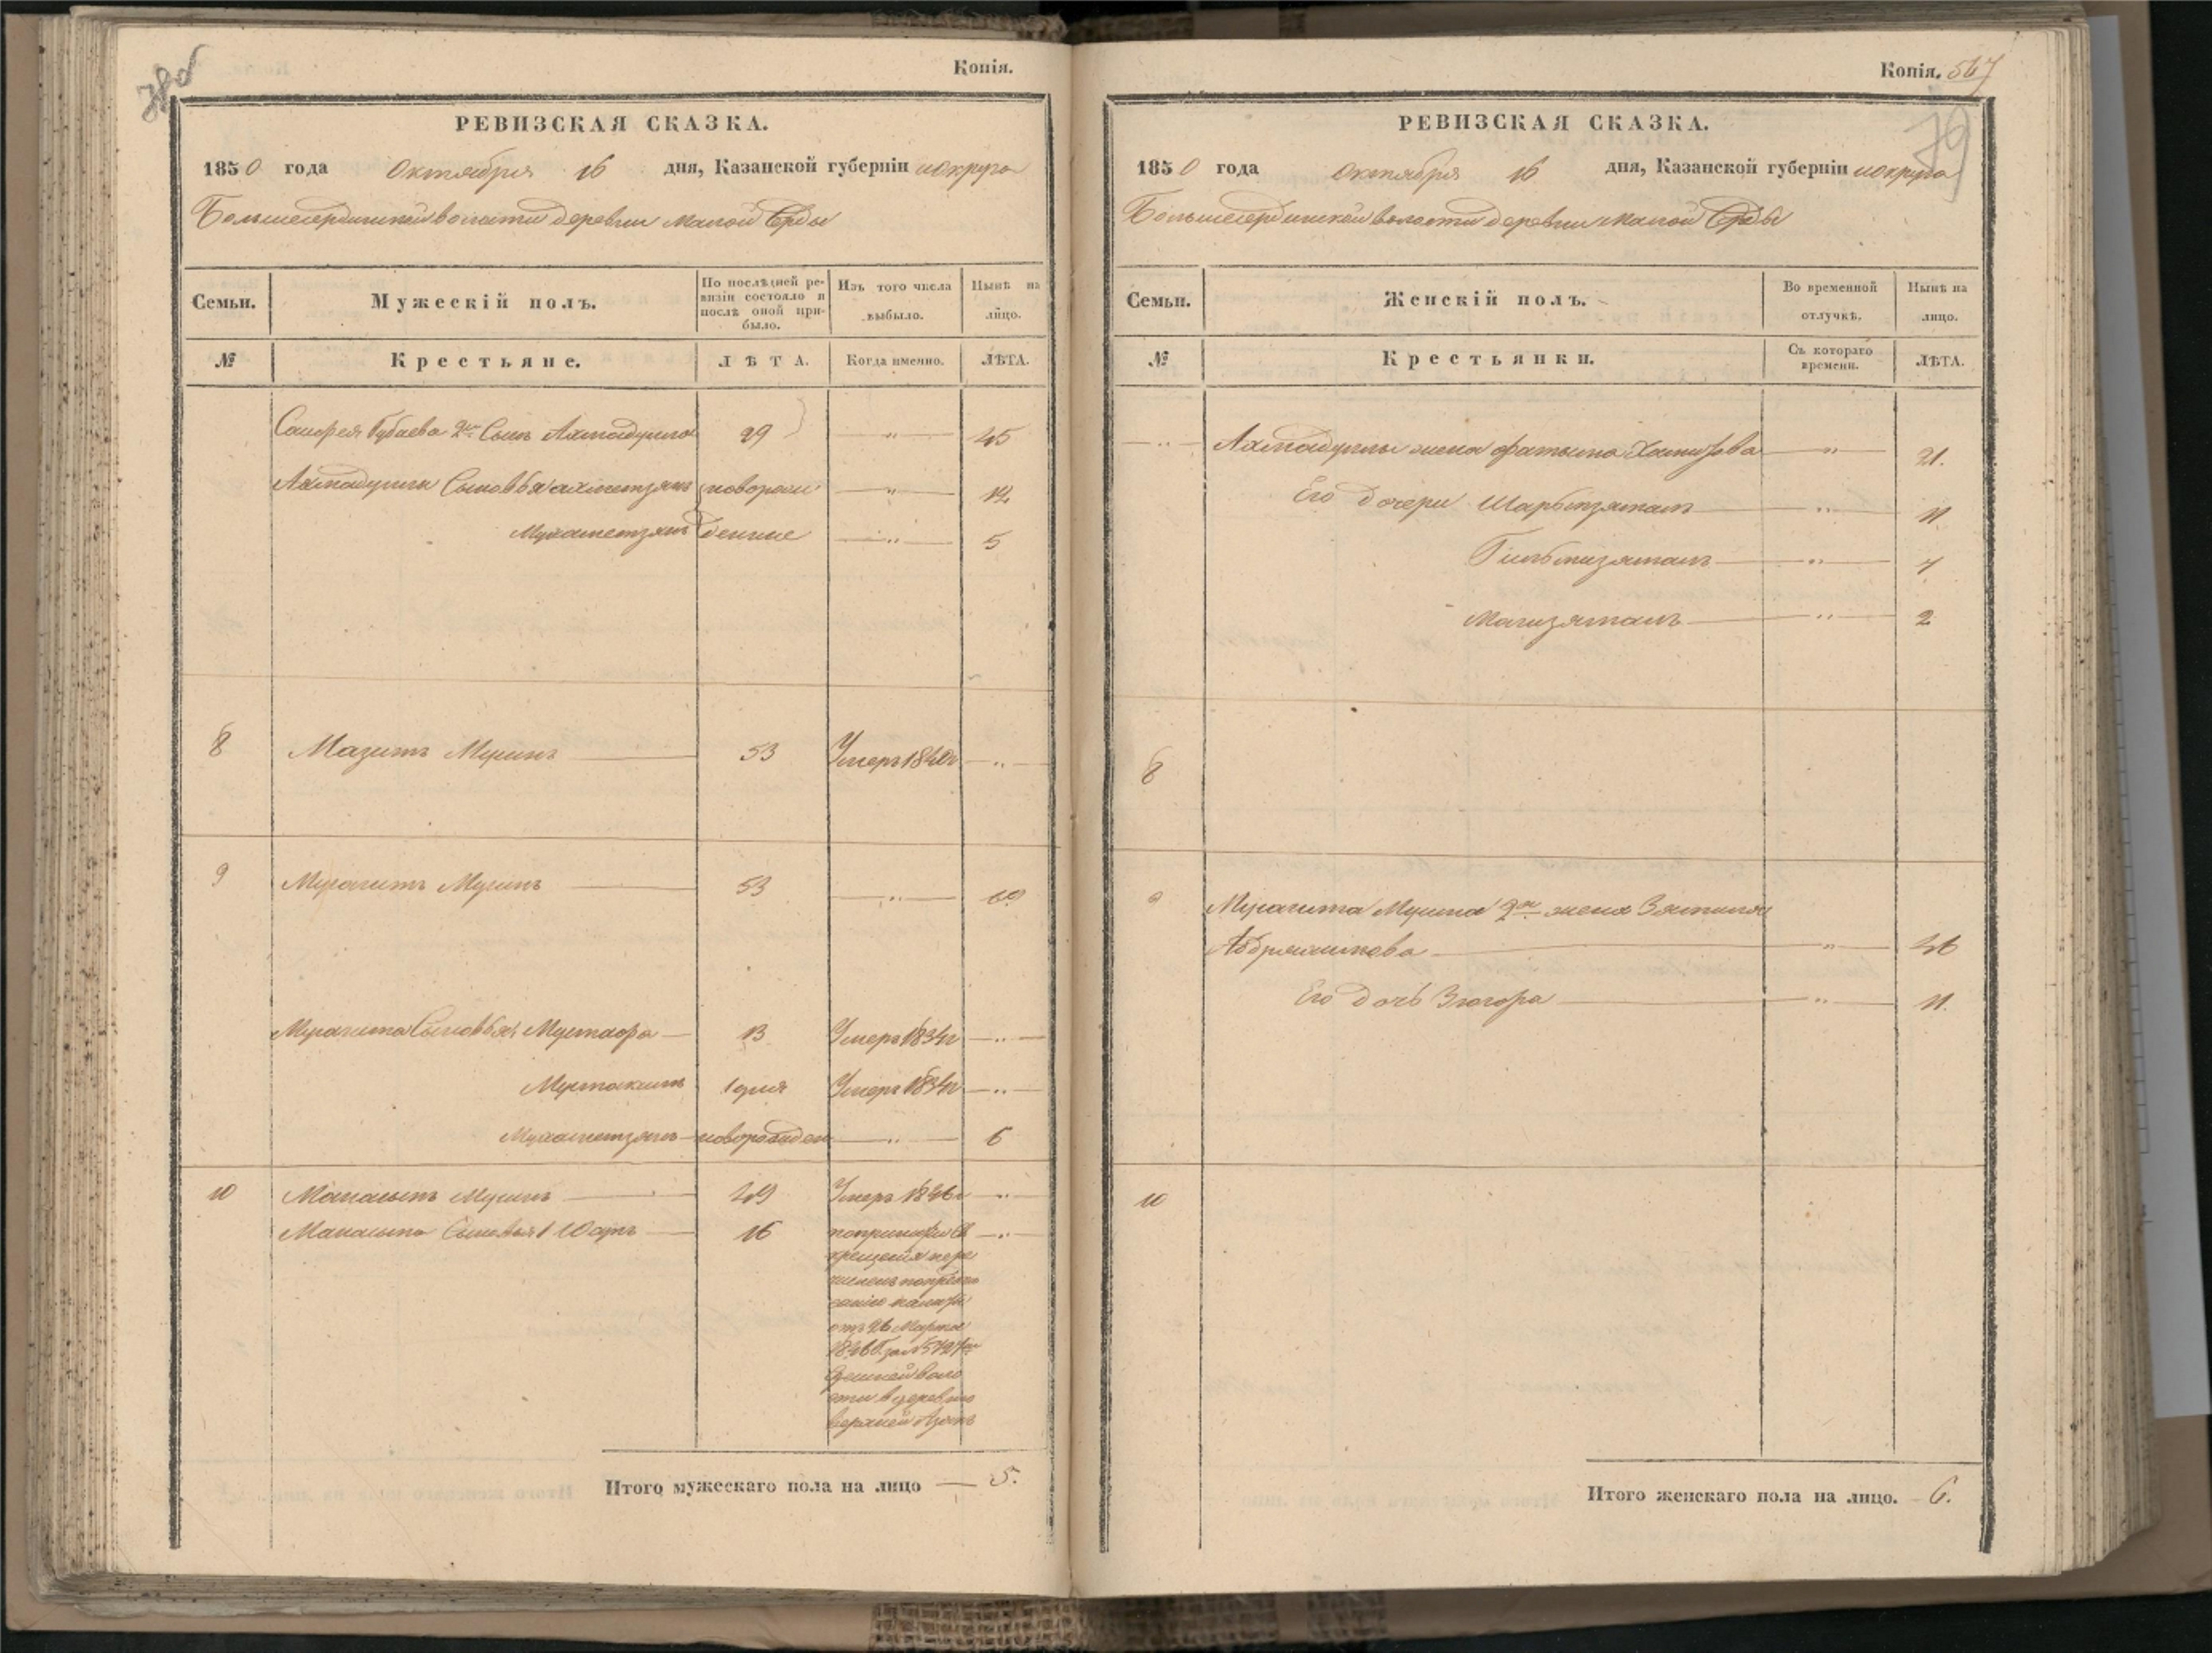 78об
Копія.
РЕВИЗСКАЯ СКАЗКА.
1850 года Октября 16 дня, Казанской губерніи и округа
Большесердинской волости деревни Малой Ерды
Семьи.
Мужескій полъ.
По послѣдней ре-
визіи состояло и
послѣ оной при-
было.
Изъ того числа
выбыло.
Нынѣ на
лицо.
№
Крестьяне.
ЛѢТА.
Когда именно.
ЛѢТА.
Губаева 2й Сынъ Ахмадулла 29 — " — 45
Ахмадуллы Сыновья Ахметзянъ новорож — " — 12
Мухаметзянъ денные — " — 5
8 Мазитъ Мусинъ — 53 Умеръ — " —
9 Мусагитъ Мусинъ — 53 — " —
Мусагита Сыновья Мустафа — 13 Умеръ 1834г — " —
Мустакимъ Умеръ 1834г — " —
Мухаметзянъ — новорожден — " — 6
10 Мусинъ — 49 Умеръ — " —
Сыновья 1 Юсупъ — 16 по принятіи Св — " —
крещенія пере
численъ по предпи
санію палаты
отъ 26 Марта
1846 г. за №
волос
сти в деревню
верхней
Итого мужескаго пола на лицо — 5.
Копія. 567
79
РЕВИЗСКАЯ СКАЗКА.
1850 года Октября 16 дня, Казанской губерніи и округа
Большесердинской волости деревни Малой Ерды
Семьи.
Женскій полъ.
Во временной
отлучкѣ.
Нынѣ на
лицо.
№
Крестьянки.
Съ котораго
времени.
ЛѢТА.
— " — Ахмадуллы жена Фатыма — " — 21.
Его дочери — " — 11.
— " — 7
— " — 2
8
9 Мусагита Мусина 2я жена
Абдряшитова — " — 46
Его дочь Зюгора — " — 11.
10
Итого женскаго пола на лицо. — 6.